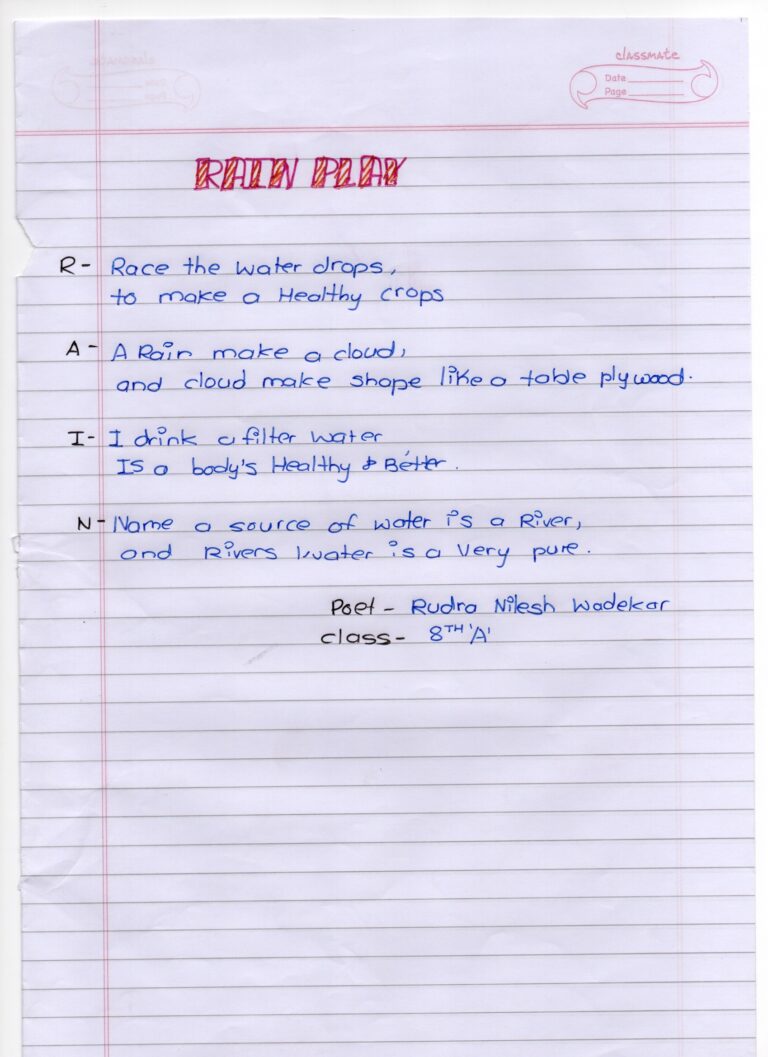 classmate
Date
Page
RAIN PLAY
R- Race the water drops,
to make a Healthy crops
A- A Rain make a cloud,
and cloud make shape like a table plywood.
I- I drink a filter water
IS a body's Healthy & Better.
N- Name a source of water is a River,
and Rivers water is a very pure.
Poet - Rudra Nilesh Wadekar
class- 8TH 'A'